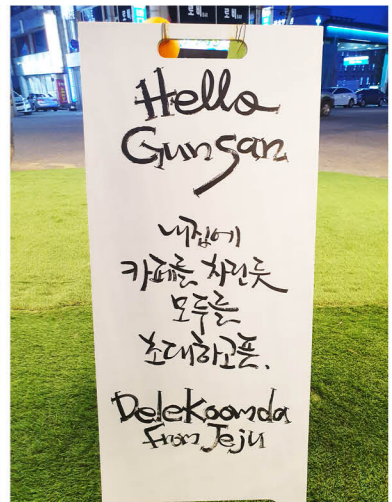 Hello
Gunsan
내집에
카페를 차린듯
모두를
초대하고픈.
Delekoomda
From Jeju